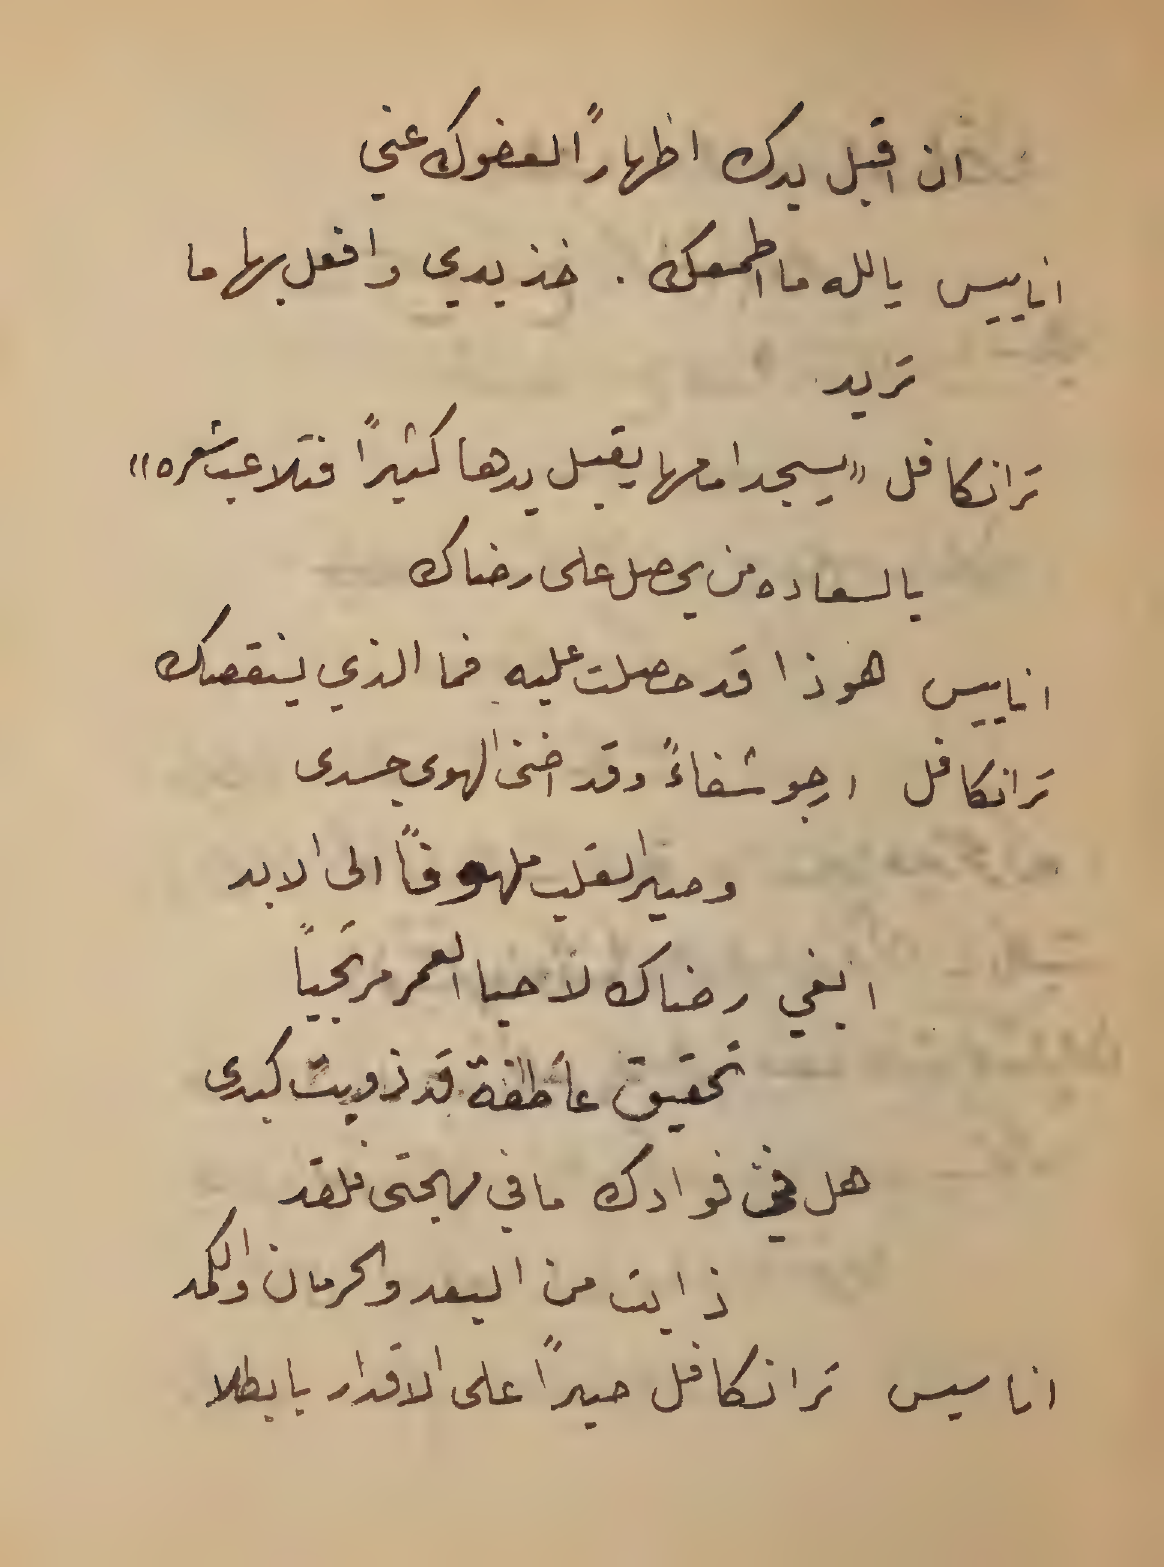 ان اقبل يدك اظهاراً لعفوك عني
اناييس يالله ما اطمعك . خذ يدي وافعل بها ما
تريد
ترانكافل «يسجد امامها يقبل يدها كثيراً فتلاعب شعره»
يالسعاده من يحصل على رضاك
اناييس هوذا قد حصلت عليه فما الذي ينقصك
ترانكافل ارجو شفاءً وقد اضنى الهوى جسدى
وصير القلب ملهوفاً الى الابد
ابغي رضاك لاحيا العمر مرتجياً
تحقيق عاطفة قد ذوبت كبدى
هل في فوادك ما في مهجتى فلقد
ذابت من البعد والحرمان والكمد
اناسيس ترانكافل صبراً على الاقدار يا بطلا